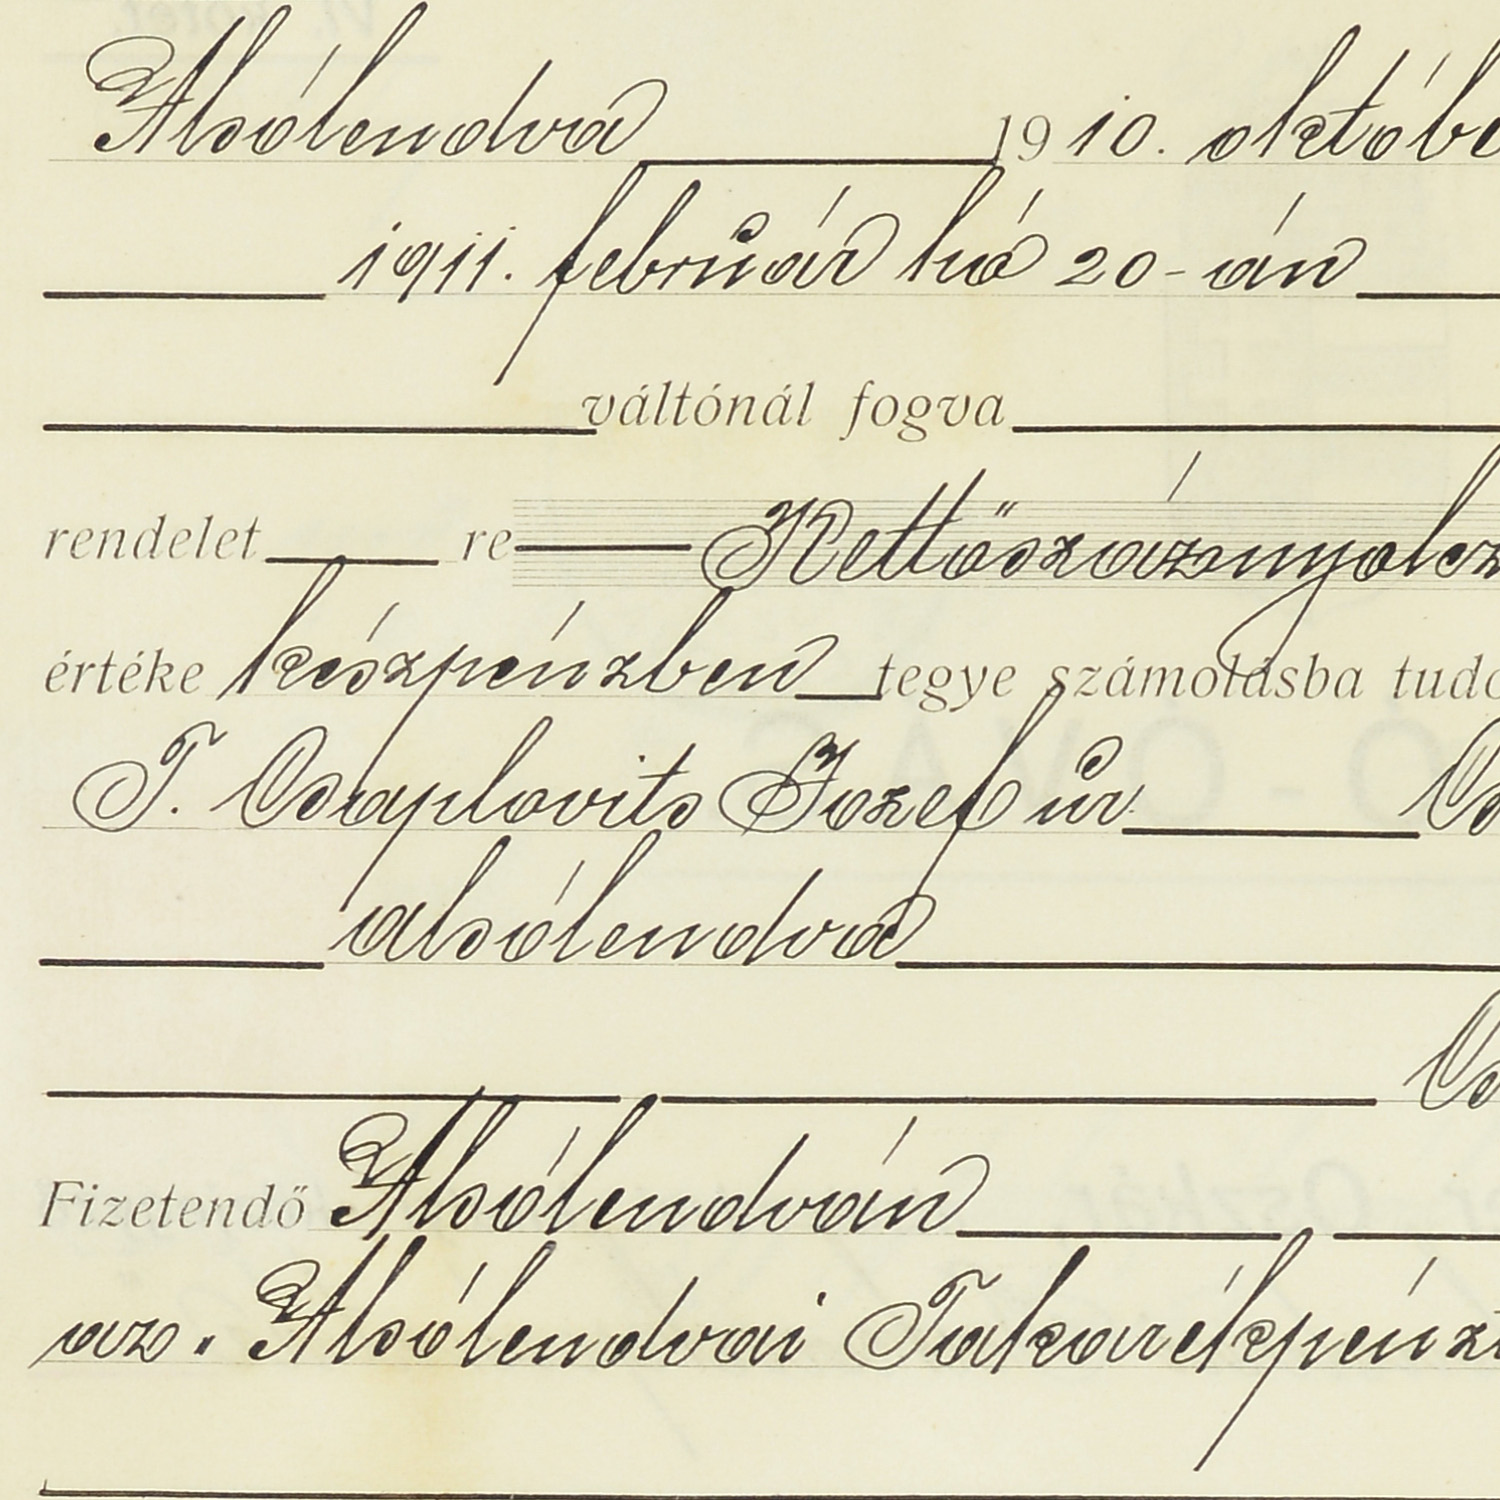 Alsólendva 1910. októbe
1911. február hó 20-án
váltónál fogva
rendelet re Kettőszáznyolcz
értéke készpénzben tegye számolásba tudo
T. Csaplovits Jozef úr Cs
alsólendva
Cs
Fizetendő Alsólendván
az. Alsólendvai Takarékpénzt